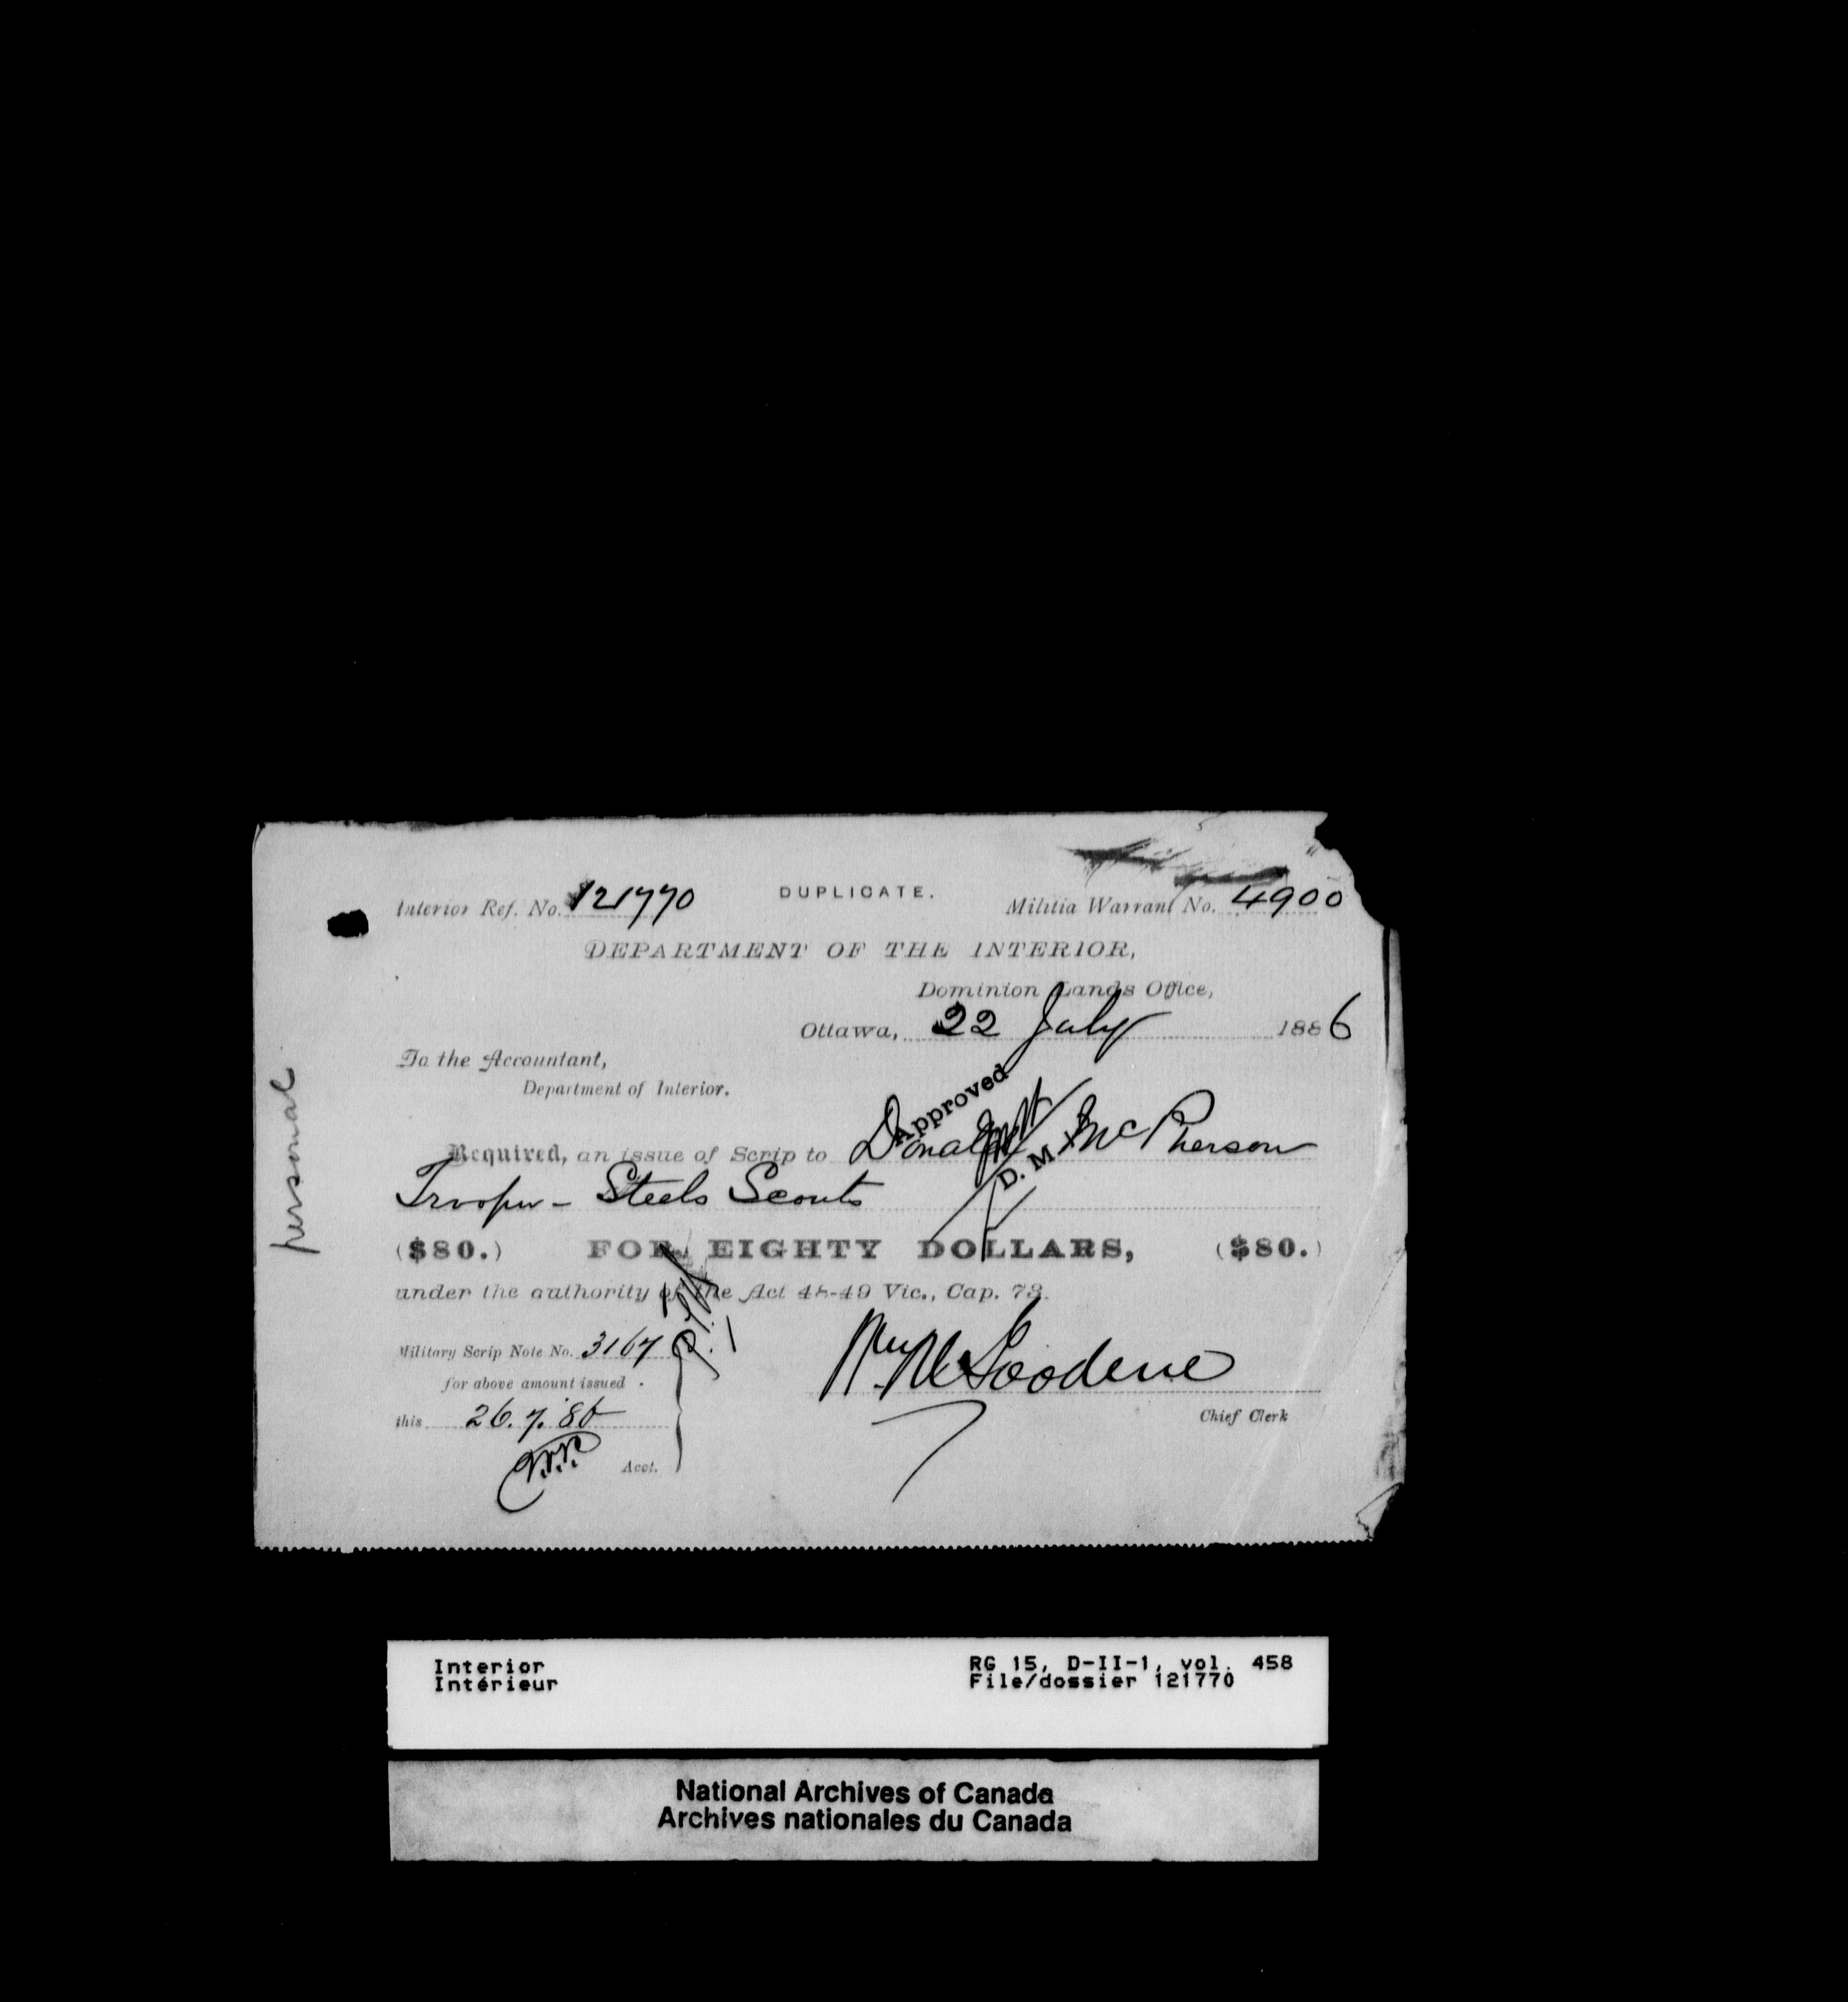 Interior Ref. No. 121770
DUPLICATE.
Militia Warrant No. 4900
DEPARTMENT OF THE INTERIOR,
Dominion Lands Office,
Ottawa, 22 July 1886
To the Accountant,
Department of Interior.
Approved
D. M. I.
Required, an issue of Scrip to Donald McPherson
Trooper - Steels Scouts
($80.) FOR EIGHTY DOLLARS, ($80.)
under the authority of the Act 48-49 Vic., Cap. 73.
Military Scrip Note No. 3167
for above amount issued
this 26.7.86
Acct.
Chief Clerk
personal
Interior
Intérieur
RG 15, D-II-1, vol. 458
File/dossier 121770
National Archives of Canada
Archives nationales du Canada